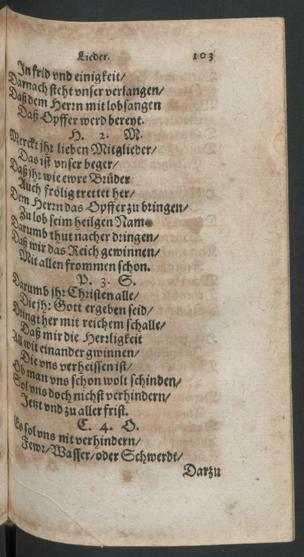 Lieder. 103
In frid vnd einigkeit/
Darnach steht vnser verlangen/
Daß dem Herrn mit lobsangen
Daß Opffer werd bereyt.
H. 2. M.
Merckt jhr lieben Mitglieder/
Das ist vnser beger/
Daß jhr wie ewre Brüder
Auch frölig trettet her/
Dem Herrn das Opffer zu bringen/
Zu lob seim heilgen Name
Darumb thut nacher dringen/
Daß wir das Reich gewinnen/
Mit allen frommen schon.
P. 3. S.
Darumb jhr Christen alle/
Die jhr Gott ergeben seid/
Bringt her mit reichem schalle/
Daß mir die Herrligkeit
All wit einander gwinnen/
Die vns verheissen ist/
Ob man vns schon wolt schinden/
Sol vns doch nichst verhindern/
Jetzt vnd zu aller frist.
C. 4. O.
Es sol vns nit verhindern/
Fewr/Wasser/oder Schwerdt/
Darzu